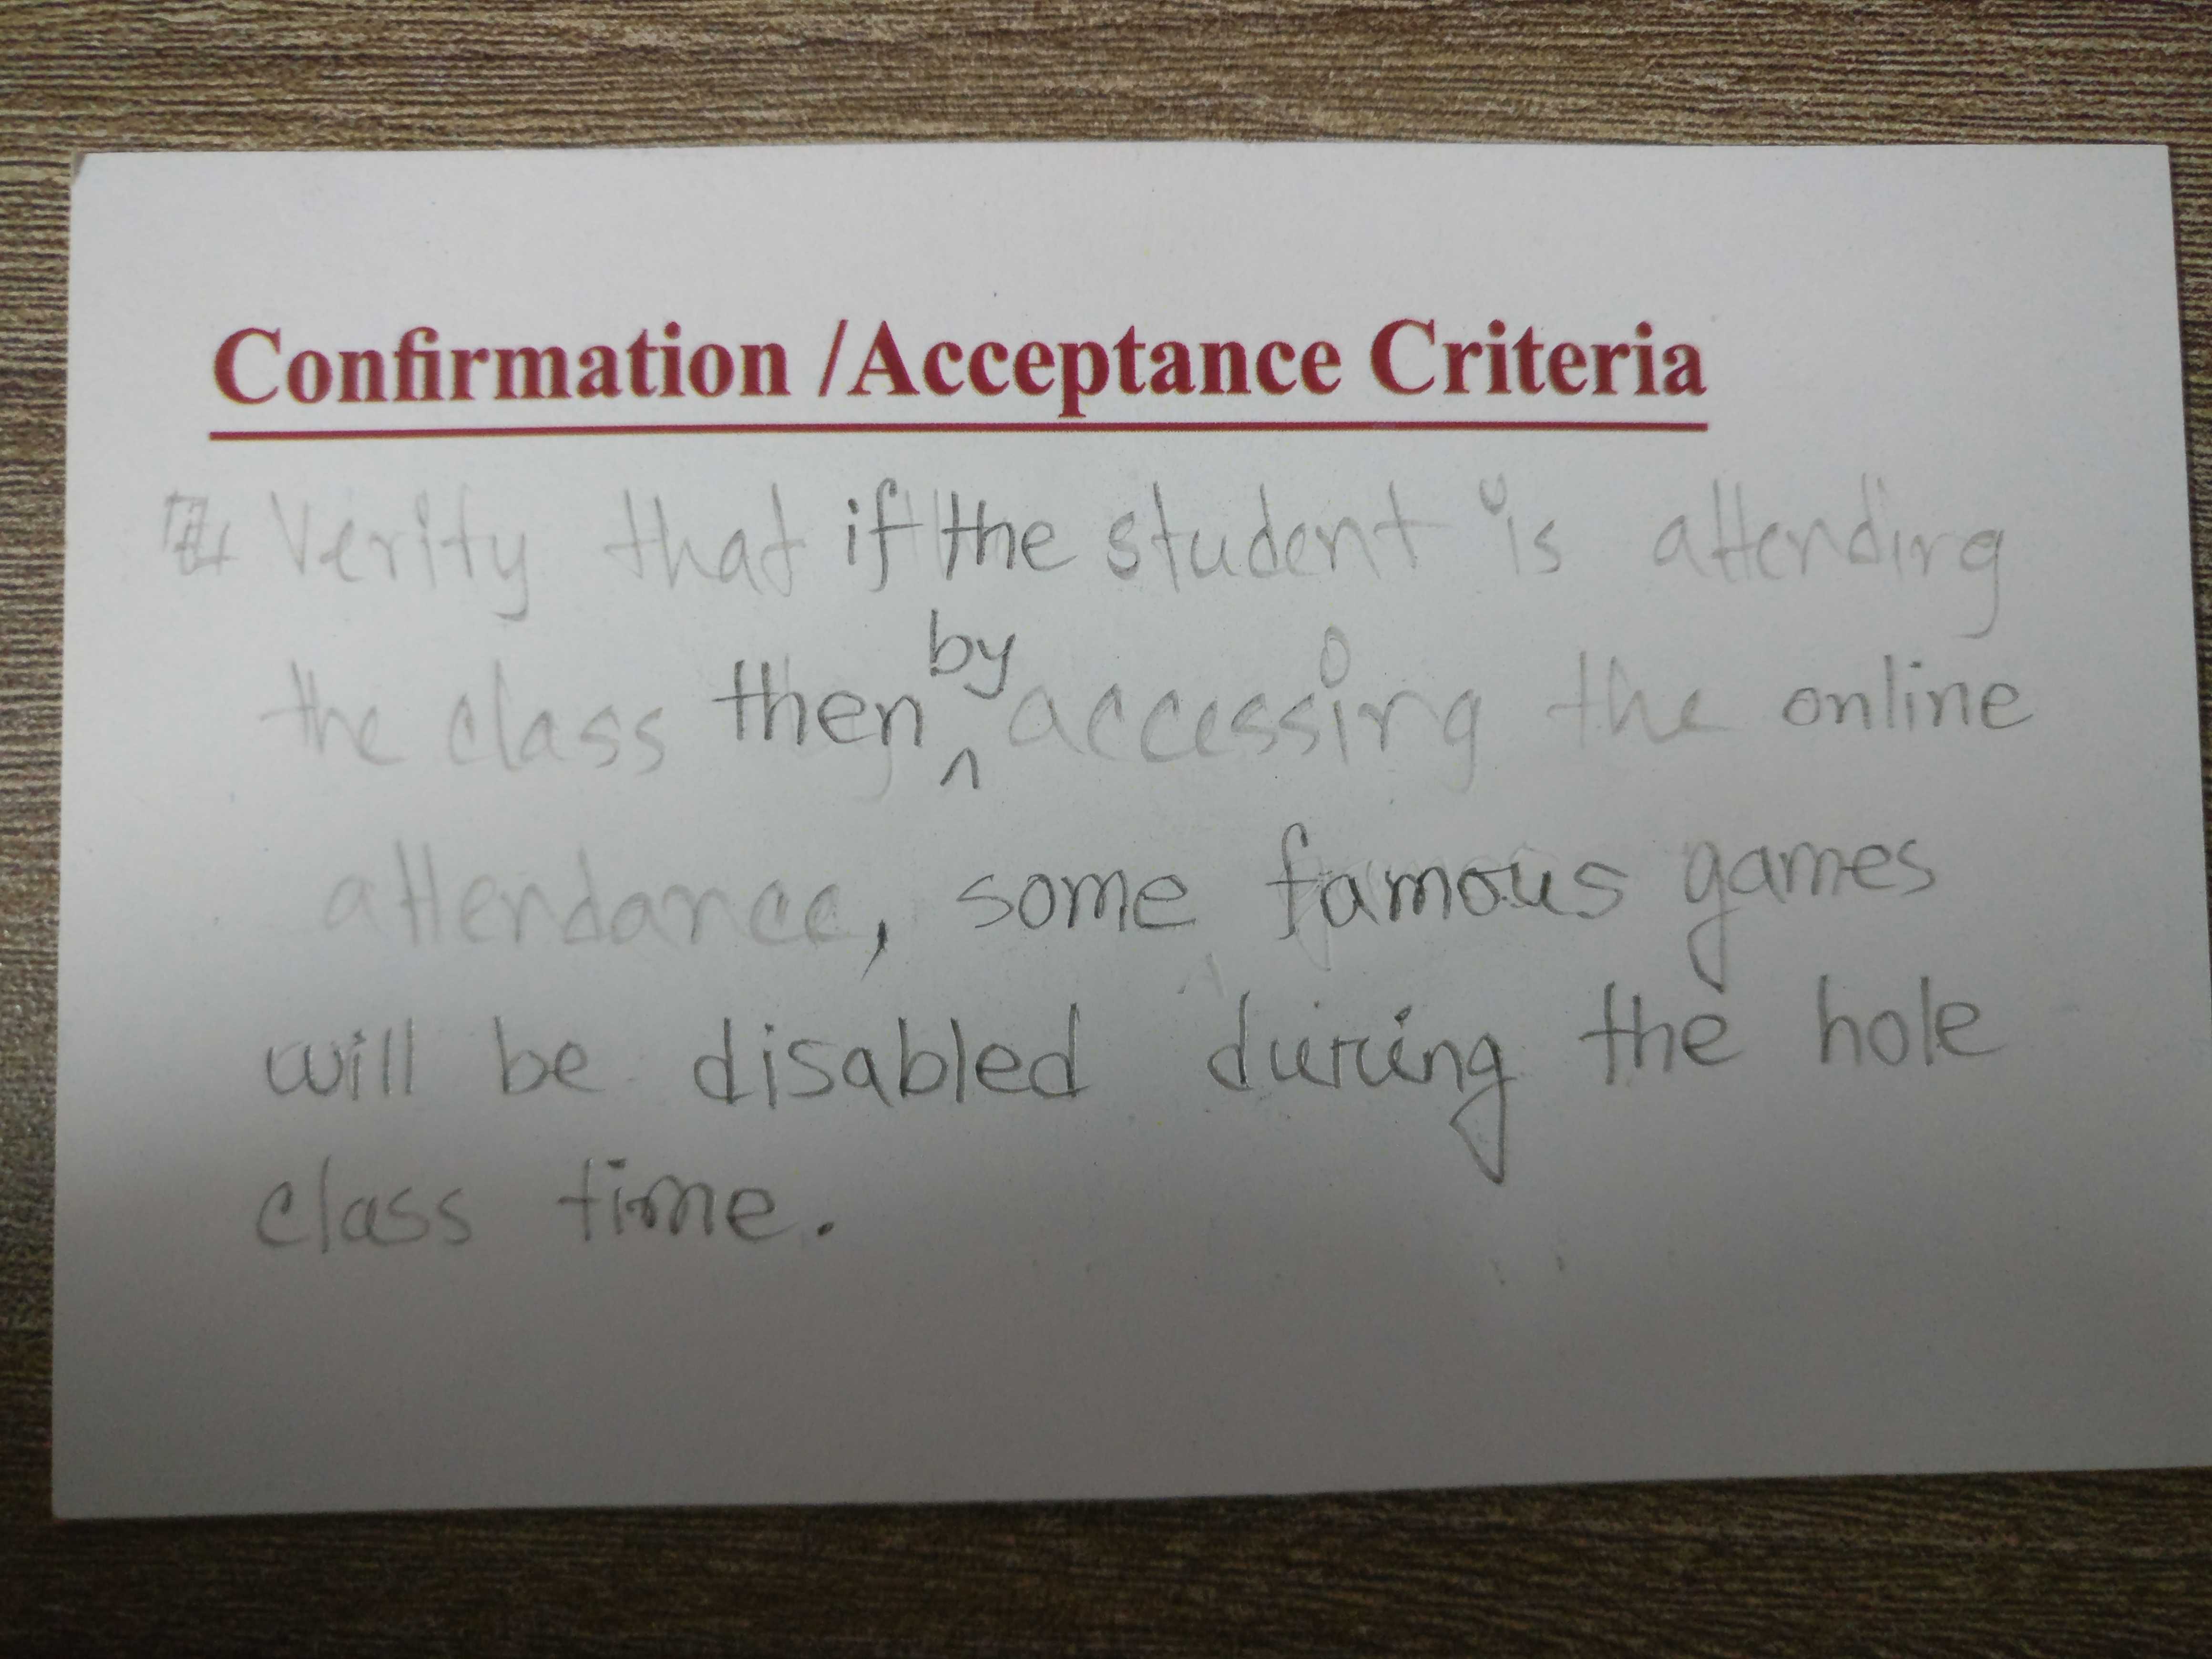 Confirmation /Acceptance Criteria
Verify that if the student is attending
the class then by accessing the online
attendance, some famous games
will be disabled during the hole
class time.